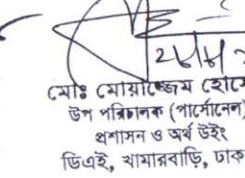 মোঃ মোয়াজ্জেম হোসে
উপ পরিচালক (পার্সোনেল)
প্রশাসন ও অর্থ উইং
ডিএই, খামারবাড়ি, ঢাক